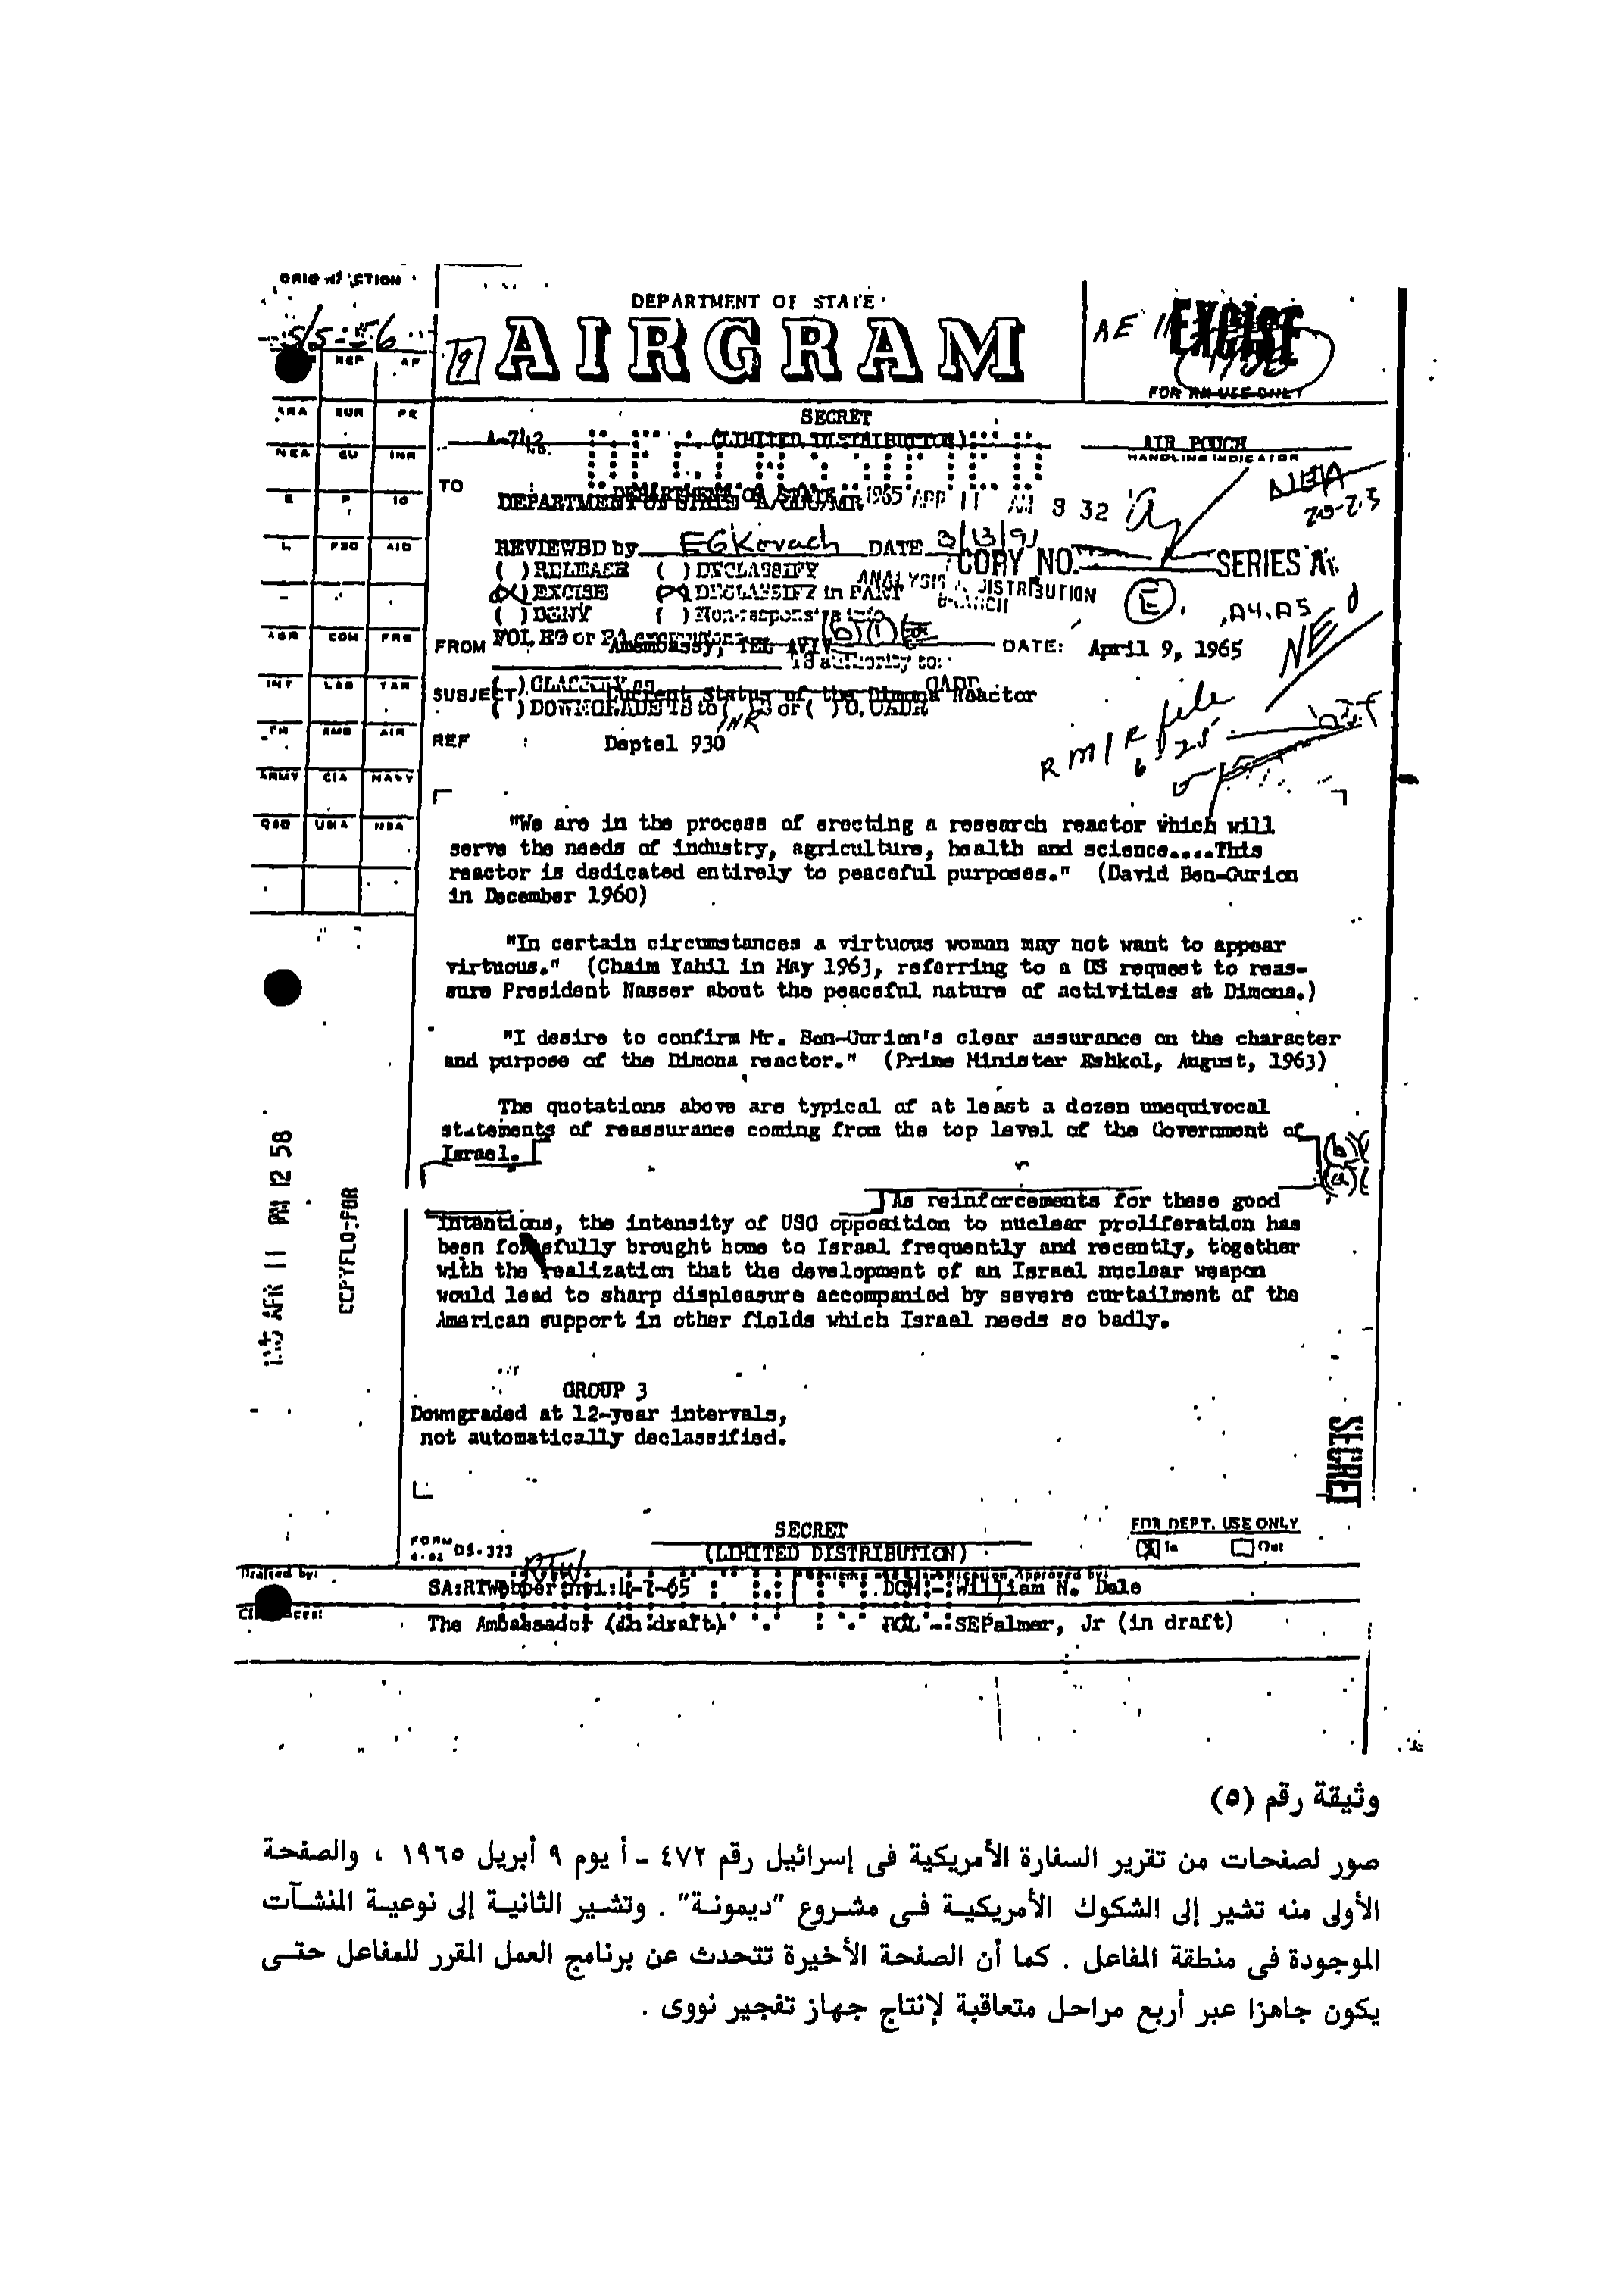 DEPARTMENT OF STATE
AIRGRAM
EXCISE
FOR RM USE ONLY
SECRET
A-742
NO.
(LIMITED DISTRIBUTION)
AIR POUCH
HANDLING INDICATOR
NEA
TO
DEPARTMENT OF STATE
1965 APR 11 AM 8 32
REVIEWED by EGKovach DATE 3/13/91
COPY NO. SERIES A
( ) RELEASE ( ) DECLASSIFY
(X) EXCISE (X) DECLASSIFY in PART
ANALYSIS & DISTRIBUTION
BRANCH
( ) DENY ( ) Non-responsive info
E
,A4,A5
FROM Amembassy, TEL AVIV DATE: April 9, 1965
SUBJECT: Current Status of the Dimona Reactor
REF : Deptel 930
RM/R file
ARA EUR FE
NEA CU INR
E P IO
L FBO AID
AGR COM FRB
INT LAB TAR
TR XMB AIR
ARMY CIA NAVY
OSD USIA NSA
"We are in the process of erecting a research reactor which will
serve the needs of industry, agriculture, health and science....This
reactor is dedicated entirely to peaceful purposes." (David Ben-Gurion
in December 1960)
"In certain circumstances a virtuous woman may not want to appear
virtuous." (Chaim Yahil in May 1963, referring to a US request to reas-
sure President Nasser about the peaceful nature of activities at Dimona.)
"I desire to confirm Mr. Ben-Gurion's clear assurance on the character
and purpose of the Dimona reactor." (Prime Minister Eshkol, August, 1963)
The quotations above are typical of at least a dozen unequivocal
statements of reassurance coming from the top level of the Government of
Israel.
As reinforcements for these good
intentions, the intensity of USG opposition to nuclear proliferation has
been forcefully brought home to Israel frequently and recently, together
with the realization that the development of an Israel nuclear weapon
would lead to sharp displeasure accompanied by severe curtailment of the
American support in other fields which Israel needs so badly.
APR 11 PM 12 58
COPYFLO-PBR
GROUP 3
Downgraded at 12-year intervals,
not automatically declassified.
SECRET
SECRET
(LIMITED DISTRIBUTION)
FORM
DS-323
FOR DEPT. USE ONLY
In Out
Drafted by:
SA:RTWebber:mpi:4-7-65
DCM - William N. Dale
Clearances:
The Ambassador (in draft) POL - SEPalmer, Jr (in draft)
وثيقة رقم (٥)
صور لصفحات من تقرير السفارة الأمريكية فى إسرائيل رقم ٤٧٢ - أ يوم ٩ أبريل ١٩٦٥ ، والصفحة
الأولى منه تشير إلى الشكوك الأمريكية فى مشروع "ديمونة" . وتشير الثانية إلى نوعية المنشآت
الموجودة فى منطقة المفاعل . كما أن الصفحة الأخيرة تتحدث عن برنامج العمل المقرر للمفاعل حتى
يكون جاهزا عبر أربع مراحل متعاقبة لإنتاج جهاز تفجير نووى .